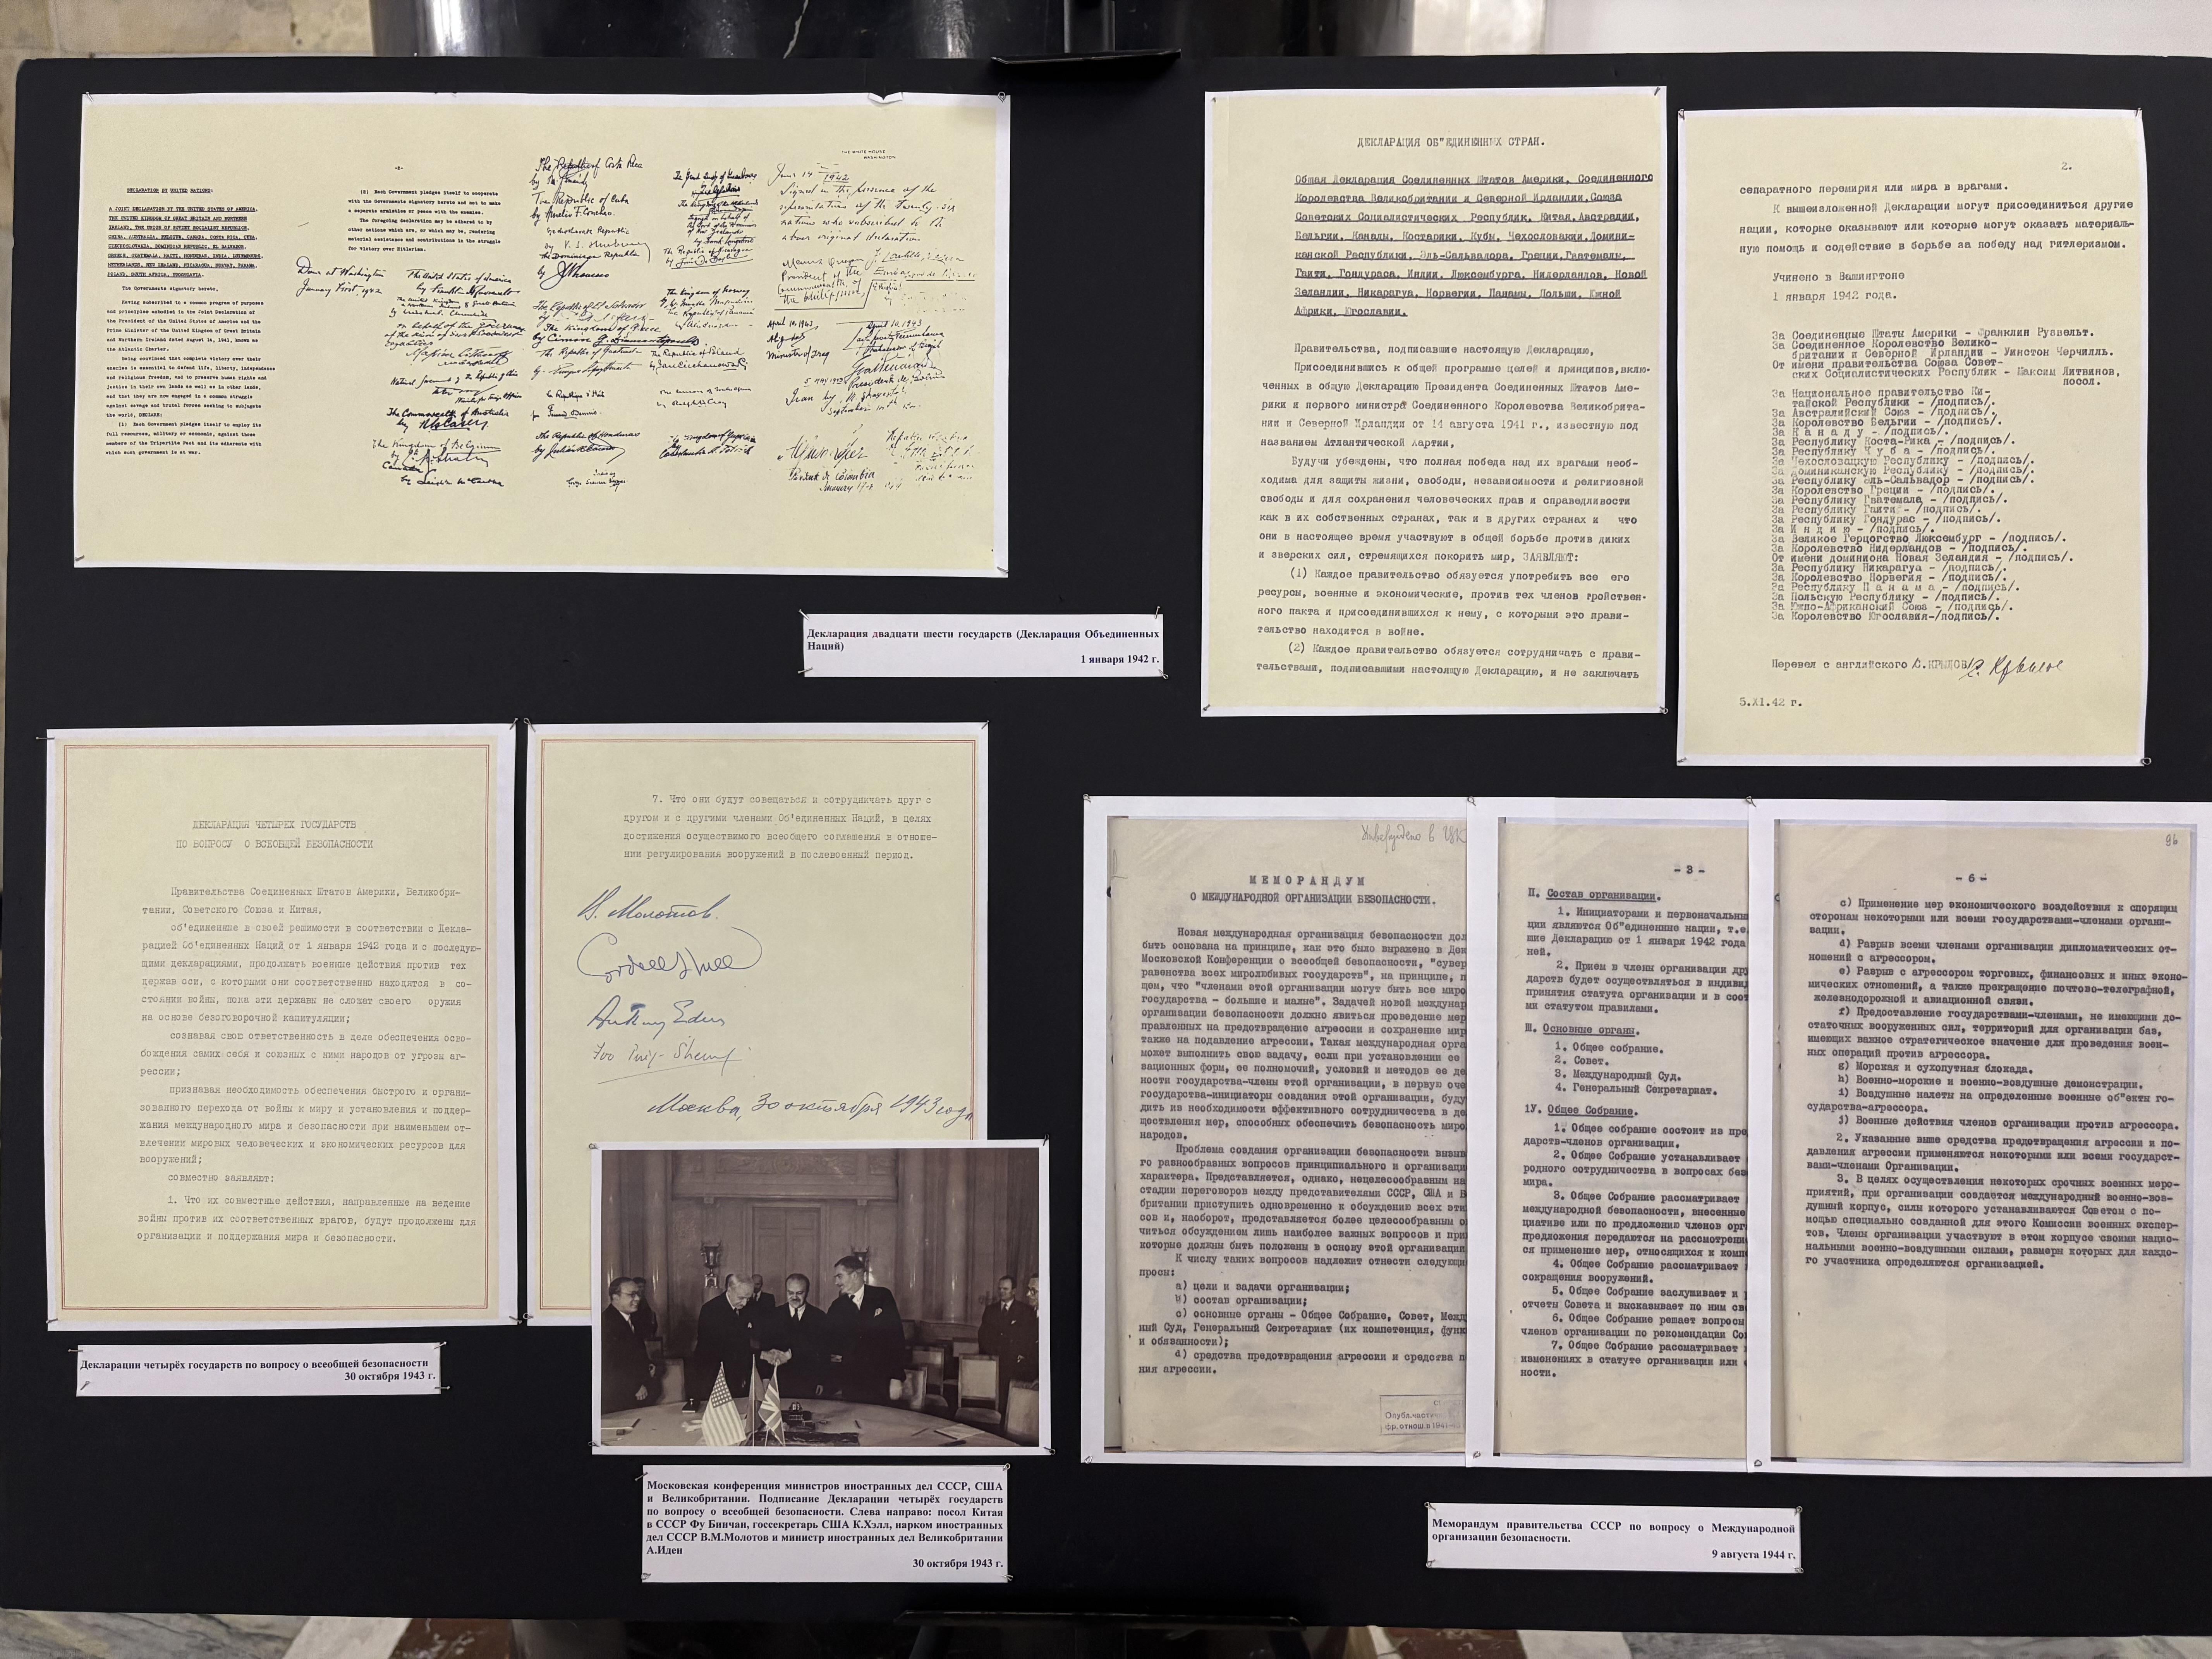 DECLARATION BY UNITED NATIONS:
A JOINT DECLARATION BY THE UNITED STATES OF AMERICA,
THE UNITED KINGDOM OF GREAT BRITAIN AND NORTHERN
IRELAND, THE UNION OF SOVIET SOCIALIST REPUBLICS,
CHINA, AUSTRALIA, BELGIUM, CANADA, COSTA RICA, CUBA,
CZECHOSLOVAKIA, DOMINICAN REPUBLIC, EL SALVADOR,
GREECE, GUATEMALA, HAITI, HONDURAS, INDIA, LUXEMBOURG,
NETHERLANDS, NEW ZEALAND, NICARAGUA, NORWAY, PANAMA,
POLAND, SOUTH AFRICA, YUGOSLAVIA.
The Governments signatory hereto,
Having subscribed to a common program of purposes
and principles embodied in the Joint Declaration of
the President of the United States of America and the
Prime Minister of the United Kingdom of Great Britain
and Northern Ireland dated August 14, 1941, known as
the Atlantic Charter.
Being convinced that complete victory over their
enemies is essential to defend life, liberty, independence
and religious freedom, and to preserve human rights and
justice in their own lands as well as in other lands,
and that they are now engaged in a common struggle
against savage and brutal forces seeking to subjugate
the world, DECLARE:
(1) Each Government pledges itself to employ its
full resources, military or economic, against those
members of the Tripartite Pact and its adherents with
which such government is at war.
-2-
(2) Each Government pledges itself to cooperate
with the Governments signatory hereto and not to make
a separate armistice or peace with the enemies.
The foregoing declaration may be adhered to by
other nations which are, or which may be, rendering
material assistance and contributions in the struggle
for victory over Hitlerism.
Done at Washington
January First, 1942
The United States of America
by Franklin D. Roosevelt
The Commonwealth of Australia
The Kingdom of Belgium
Canada
by Leighton McCarthy
The Republic of Costa Rica
The Republic of Cuba
by Aurelio F. Concheso
The Dominican Republic
by
The Republic of El Salvador
The Kingdom of Greece
by Cimon G. Diamantopoulos
The Republic of Guatemala
The Republic of Haiti
The Republic of Honduras
The Kingdom of Norway
The Republic of Poland
THE WHITE HOUSE
WASHINGTON
June 14 1942
Signed in the presence of the
representatives of the Twenty-six
nations who subscribed to the
above original declaration
President of the
Commonwealth of
the Philippines
April 10, 1943
Minister of Iraq
Декларация двадцати шести государств (Декларация Объединенных
Наций)
1 января 1942 г.
ДЕКЛАРАЦИЯ ОБ"ЕДИНЕННЫХ СТРАН.
Общая Декларация Соединенных Штатов Америки, Соединенного
Королевства Великобритании и Северной Ирландии,Союза
Советских Социалистических Республик, Китая,Австралии,
Бельгии, Канады, Костарики, Кубы, Чехословакии,Домини-
канской Республики, Эль-Сальвадора, Греции,Гватемалы,
Гаити, Гондураса, Индии, Люксембурга, Нидерландов, Новой
Зеландии, Никарагуа, Норвегии, Панамы, Польши, Южной
Африки, Югославии.
Правительства, подписавшие настоящую Декларацию,
Присоединившись к общей программе целей и принципов,вклю-
ченных в общую Декларацию Президента Соединенных Штатов Аме-
рики и первого министра Соединенного Королевства Великобрита-
нии и Северной Ирландии от 14 августа 1941 г., известную под
названием Атлантической Хартии,
Будучи убеждены, что полная победа над их врагами необ-
ходима для защиты жизни, свободы, независимости и религиозной
свободы и для сохранения человеческих прав и справедливости
как в их собственных странах, так и в других странах и что
они в настоящее время участвуют в общей борьбе против диких
и зверских сил, стремящихся покорить мир, ЗАЯВЛЯЮТ:
(1) Каждое правительство обязуется употребить все его
ресурсы, военные и экономические, против тех членов тройствен-
ного пакта и присоединившихся к нему, с которыми это прави-
тельство находится в войне.
(2) Каждое правительство обязуется сотрудничать с прави-
тельствами, подписавшими настоящую Декларацию, и не заключать
2.
сепаратного перемирия или мира в врагами.
К вышеизложенной Декларации могут присоединиться другие
нации, которые оказывают или которые могут оказать материаль-
ную помощь и содействие в борьбе за победу над гитлеризмом.
Учинено в Вашингтоне
1 января 1942 года.
За Соединенные Штаты Америки - Франклин Рузвельт.
За Соединенное Королевство Велико-
британии и Северной Ирландии - Уинстон Черчилль.
От имени правительства Союза Совет-
ских Социалистических Республик - Максим Литвинов,
посол.
За Национальное правительство Ки-
тайской Республики - /подпись/.
За Австралийский Союз - /подпись/.
За Королевство Бельгии - /подпись/.
За К а н а д у - /подпись/.
За Республику Коста-Рика - /подпись/.
За Республику К у б а - /подпись/.
За Чехословацкую Республику - /подпись/.
За Доминиканскую Республику - /подпись/.
За Республику Эль-Сальвадор - /подпись/.
За Королевство Греции - /подпись/.
За Республику Гватемала - /подпись/.
За Республику Гаити - /подпись/.
За Республику Гондурас - /подпись/.
За И н д и ю - /подпись/.
За Великое Герцогство Люксембург - /подпись/.
За Королевство Нидерландов - /подпись/.
От имени доминиона Новая Зеландия - /подпись/.
За Республику Никарагуа - /подпись/.
За Королевство Норвегия - /подпись/.
За Республику П а н а м а - /подпись/.
За Польскую Республику - /подпись/.
За Южно-Африканский Союз - /подпись/.
За Королевство Югославия-/подпись/.
Перевел с английского С.КРЫЛОВ
5.XI.42 г.
ДЕКЛАРАЦИЯ ЧЕТЫРЕХ ГОСУДАРСТВ
ПО ВОПРОСУ О ВСЕОБЩЕЙ БЕЗОПАСНОСТИ
Правительства Соединенных Штатов Америки, Великобри-
тании, Советского Союза и Китая,
об'единенные в своей решимости в соответствии с Декла-
рацией Об'единенных Наций от 1 января 1942 года и с последую-
щими декларациями, продолжать военные действия против тех
держав оси, с которыми они соответственно находятся в со-
стоянии войны, пока эти державы не сложат своего оружия
на основе безоговорочной капитуляции;
сознавая свою ответственность в деле обеспечения осво-
бождения самих себя и союзных с ними народов от угрозы аг-
рессии;
признавая необходимость обеспечения быстрого и органи-
зованного перехода от войны к миру и установления и поддер-
жания международного мира и безопасности при наименьшем от-
влечении мировых человеческих и экономических ресурсов для
вооружений;
совместно заявляют:
1. Что их совместные действия, направленные на ведение
войны против их соответственных врагов, будут продолжены для
организации и поддержания мира и безопасности.
7. Что они будут совещаться и сотрудничать друг с
другом и с другими членами Об'единенных Наций, в целях
достижения осуществимого всеобщего соглашения в отноше-
нии регулирования вооружений в послевоенный период.
В. Молотов.
Cordell Hull
Anthony Eden
Foo Ping-Sheung
Москва, 30 октября 1943 года
Декларации четырёх государств по вопросу о всеобщей безопасности
30 октября 1943 г.
Московская конференция министров иностранных дел СССР, США
и Великобритании. Подписание Декларации четырёх государств
по вопросу о всеобщей безопасности. Слева направо: посол Китая
в СССР Фу Бинчан, госсекретарь США К.Хэлл, нарком иностранных
дел СССР В.М.Молотов и министр иностранных дел Великобритании
А.Иден
30 октября 1943 г.
Утверждено в ЦК
МЕМОРАНДУМ
О МЕЖДУНАРОДНОЙ ОРГАНИЗАЦИИ БЕЗОПАСНОСТИ.
Новая международная организация безопасности дол
быть основана на принципе, как это было выражено в Дек
Московской Конференции о всеобщей безопасности, "сувер
равенства всех миролюбивых государств", на принципе, п
щем, что "членами этой организации могут быть все миро
государства - большие и малые". Задачей новой междунар
организации безопасности должно явиться проведение мер
правленных на предотвращение агрессии и сохранение мир
также на подавление агрессии. Такая международная орга
может выполнить свою задачу, если при установлении ее
вационных форм, ее полномочий, условий и методов ее де
ности государства-члены этой организации, в первую оче
государства-инициаторы создания этой организации, буду
дить из необходимости эффективного сотрудничества в де
ществления мер, способных обеспечить безопасность миро
народов.
Проблема создания организации безопасности вызыв
го разнообразных вопросов принципиального и организаци
характера. Представляется, однако, нецелесообразным на
стадии переговоров между представителями СССР, США и В
британии приступить одновременно к обсуждению всех эти
сов и, наоборот, представляется более целесообразным о
читься обсуждением лишь наиболее важных вопросов и при
которые должны быть положены в основу этой организации
К числу таких вопросов надлежит отнести следующи
просы:
a) цели и задачи организации;
b) состав организации;
c) основные органы - Общее Собрание, Совет, Межд
ный Суд, Генеральный Секретариат (их компетенция, функ
и обязанности);
d) средства предотвращения агрессии и средства п
ния агрессии.
Опубл.частич
фр.отнош.в 1941-
- 3 -
П. Состав организации.
1. Инициаторами и первоначальны
ции являются Об"единенные нации, т.е.
шие Декларацию от 1 января 1942 года
ней.
2. Прием в члены организации дру
дарств будет осуществляться в индивид
принятия статута организации и в соот
ми статутом правилами.
Ш. Основные органы.
1. Общее собрание.
2. Совет.
3. Международный Суд.
4. Генеральный Секретариат.
1У. Общее Собрание.
1. Общее собрание состоит из пре
дарств-членов организации.
2. Общее Собрание устанавливает
родного сотрудничества в вопросах без
мира.
3. Общее Собрание рассматривает
международной безопасности, внесенные
циативе или по предложению членов орг
предложения передаются на рассмотрени
ся применение мер, относящихся к комп
4. Общее Собрание рассматривает
сокращения вооружений.
5. Общее Собрание заслуживает и
отчеты Совета и высказывает по ним св
6. Общее Собрание решает вопросы
членов организации по рекомендации Со
7. Общее Собрание рассматривает
изменениях в статуте организации или
ности.
96
- 6 -
c) Применение мер экономического воздействия к спорящим
сторонам некоторыми или всеми государствами-членами органи-
зации.
d) Разрыв всеми членами организации дипломатических от-
ношений с агрессором.
e) Разрыв с агрессором торговых, финансовых и иных эконо-
мических отношений, а также прекращение почтово-телеграфной,
железнодорожной и авиационной связи.
f) Предоставление государствами-членами, не имеющими до-
статочных вооруженных сил, территорий для организации баз,
имеющих важное стратегическое значение для проведения воен-
ных операций против агрессора.
g) Морская и сухопутная блокада.
h) Военно-морские и военно-воздушные демонстрации.
i) Воздушные налеты на определенные военные об"екты го-
сударства-агрессора.
j) Военные действия членов организации против агрессора.
2. Указанные выше средства предотвращения агрессии и по-
давления агрессии применяются некоторыми или всеми государст-
вами-членами Организации.
3. В целях осуществления некоторых срочных военных меро-
приятий, при организации создается международный военно-воз-
душный корпус, силы которого устанавливаются Советом с по-
мощью специально созданной для этого Комиссии военных экспер-
тов. Члены организации участвуют в этом корпусе своими нацио-
нальными военно-воздушными силами, размеры которых для каждо-
го участника определяются организацией.
Меморандум правительства СССР по вопросу о Международной
организации безопасности.
9 августа 1944 г.